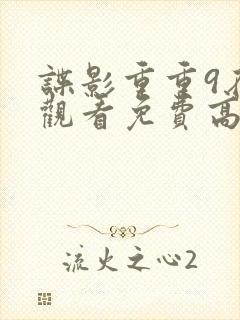 諜影重重9
觀看免費高
流火之心2